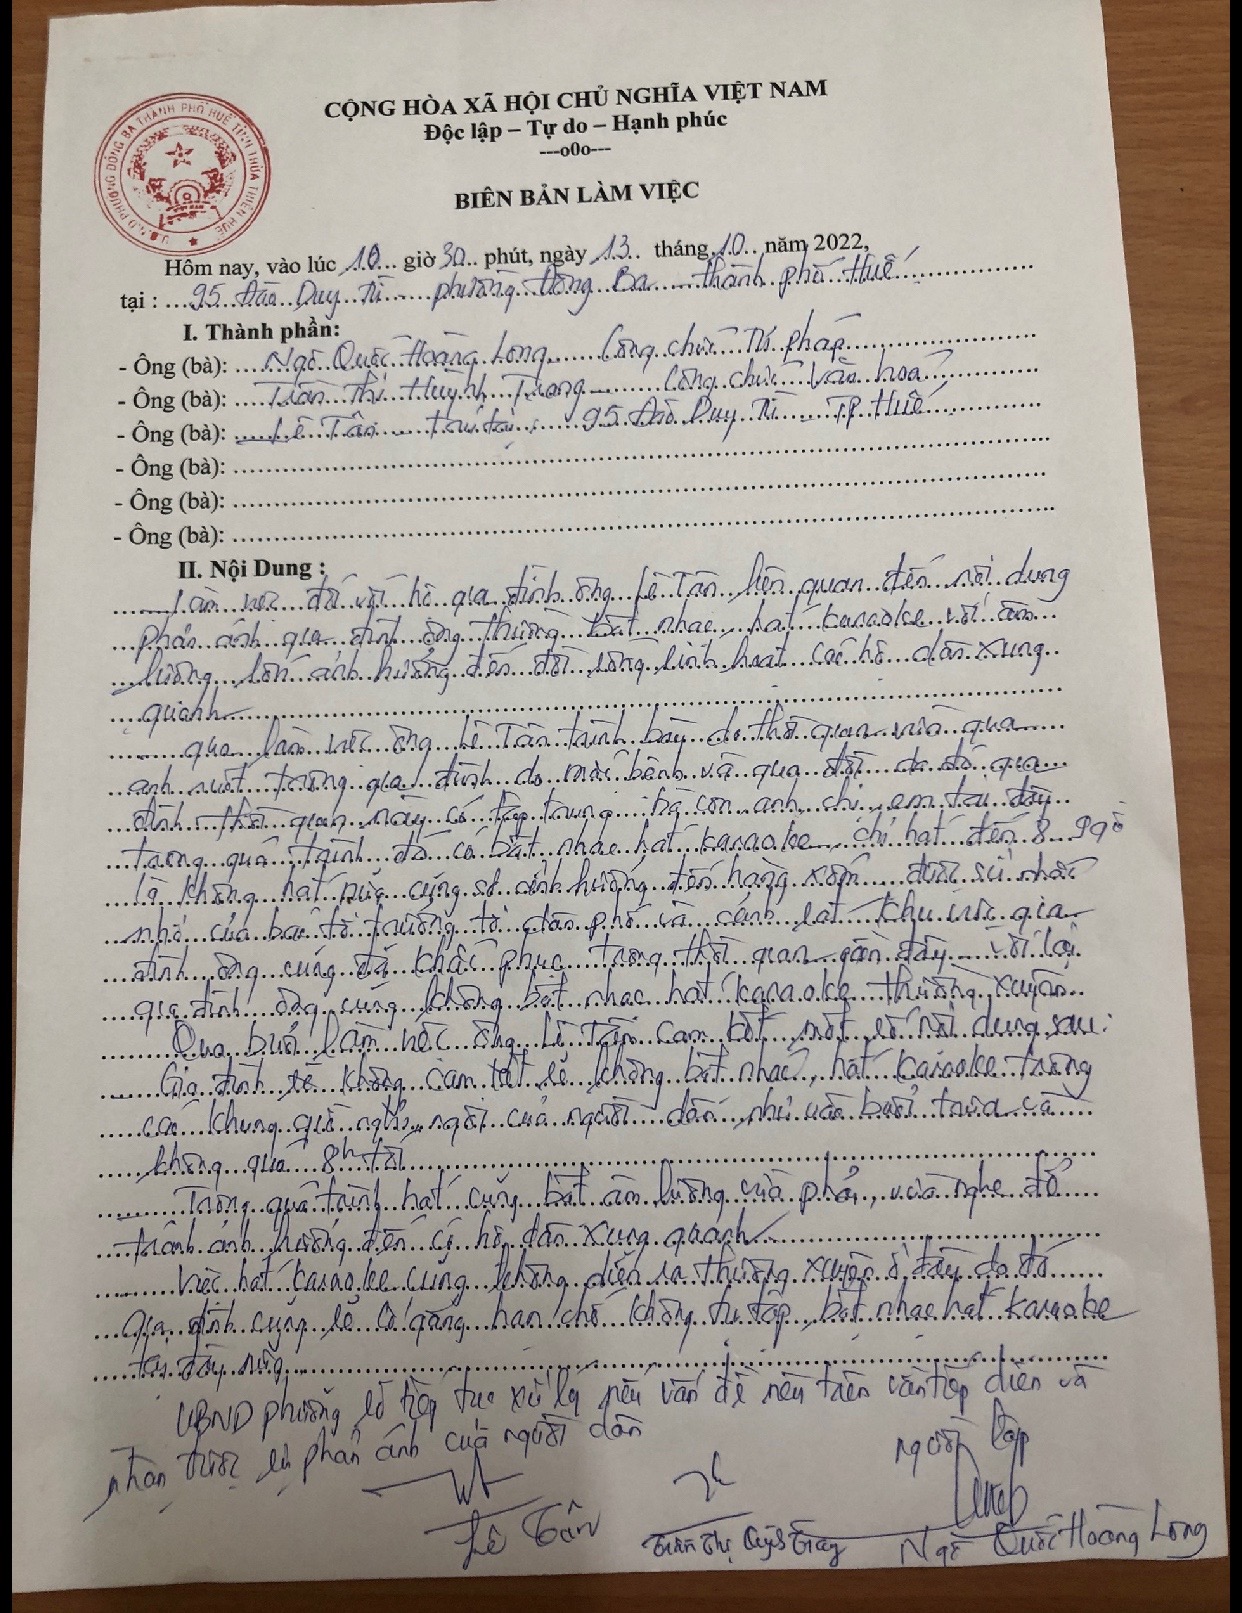 U.B.N.D PHƯỜNG ĐÔNG BA THÀNH PHỐ HUẾ TỈNH THỪA THIÊN HUẾ
CỘNG HÒA XÃ HỘI CHỦ NGHĨA VIỆT NAM
Độc lập – Tự do – Hạnh phúc
---o0o---
BIÊN BẢN LÀM VIỆC
Hôm nay, vào lúc 10 giờ 30 phút, ngày 13 tháng 10 năm 2022,
tại : 95 Đào Duy Từ phường Đông Ba thành phố Huế
I. Thành phần:
- Ông (bà): Ngô Quốc Hoàng Long Công chức Tư pháp
- Ông (bà): Trần Thị Huỳnh Trang Công chức Văn hoá
- Ông (bà): Lê Tân trú tại : 95 Đào Duy Từ TP Huế
- Ông (bà):
- Ông (bà):
- Ông (bà):
II. Nội Dung :
Làm việc đối với hộ gia đình ông Lê Tân liên quan đến nội dung
phản ánh gia đình ông thường bật nhạc, hát karaoke với âm
lượng lớn ảnh hưởng đến đời sống sinh hoạt các hộ dân xung
quanh
qua làm việc ông Lê Tân trình bày do thời gian vừa qua
anh ruột trong gia đình do mắc bệnh và qua đời do đó gia
đình thời gian này có tập trung bà con anh, chị, em tại đây
trong quá trình đó có bật nhạc hát karaoke, chỉ hát đến 8, 9 giờ
là không hát nữa cũng sợ ảnh hưởng đến hàng xóm được sự nhắc
nhở của bác tổ trưởng tổ dân phố và cảnh sát khu vực gia
đình ông cũng đã khắc phục trong thời gian gần đây với lại
gia đình ông cũng không bật nhạc hát karaoke thường xuyên
Qua buổi làm việc ông Lê Tân cam kết một số nội dung sau:
Gia đình sẽ không cam kết sẽ không bật nhạc, hát karaoke trong
các khung giờ nghỉ ngơi của người dân như vào buổi trưa và
không quá 8h tối
Trong quá trình hát cũng bật âm lượng vừa phải, vừa nghe để
tránh ảnh hưởng đến các hộ dân xung quanh
Việc hát karaoke cũng không diễn ra thường xuyên ở đây do đó
gia đình cũng sẽ cố gắng hạn chế không tụ tập, bật nhạc hát karaoke
tại đây nữa
UBND phường sẽ tiếp tục xử lý nếu vấn đề nêu trên vẫn tiếp diễn và
nhận được sự phản ánh của người dân
Người lập
Lê Tân
Trần Thị Huỳnh Trang
Ngô Quốc Hoàng Long